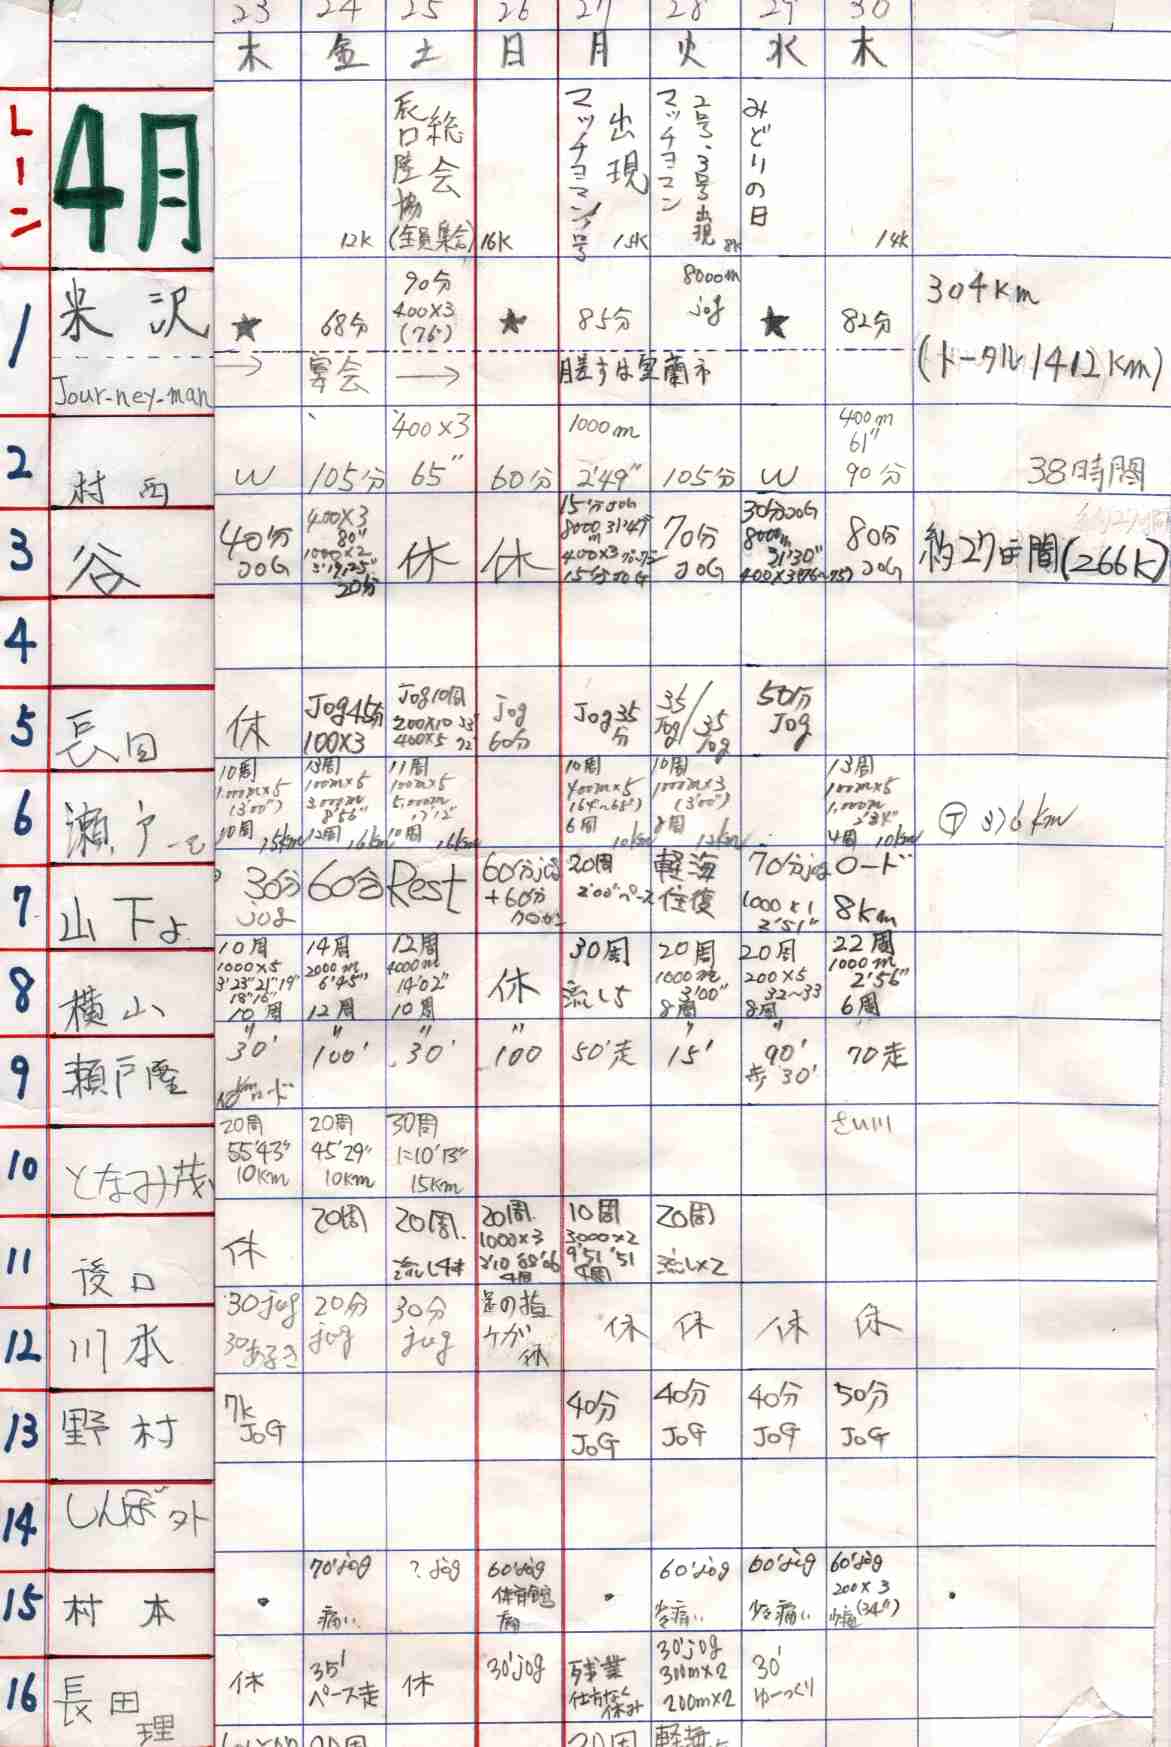 23 24 25 26 27 28 29 30
木 金 土 日 月 火 水 木
レーン
4月
12K
辰口陸協
総会
(全員集合)
16K
マッチョマン1号
出現
15K
マッチョマン
2号、3号出現
8K
みどりの日
14K
1
米沢
Jour-ney-man
★
68分
90分
400×3
(75)
★
85分
8000m
jog
★
82分
304Km
(トータル1412Km)
→
宴会
→
勝すは室蘭市
2
村西
W
105分
400×3
65"
60分
1000m
2'49"
105分
W
400m
61"
90分
38時間
3
谷
40分
JOG
400×3
80"
1000×2
20分
休
休
15分JOG
8000m 31'47"
400×3
15分JOG
70分
JOG
30分JOG
8000m
31'30"
400×3(76~75)
80分
JOG
約27時間(266K)
4
5
長田
休
Jog45分
100×3
Jog10周
200×10 33"
400×5 72"
jog
60分
Jog35分
35
Jog/35
Jog
50分
Jog
6
瀬戸
10周
1,000m×5
(3'00")
10周 15km
13周
100m×5
3,000m
8'56"
12周 16km
11周
100m×5
5,000m
17'12"
10周 16km
10周
400m×5
(64~68")
6周 10km
10周
1000m×3
(3'00")
8周 12km
13周
100m×5
1,000m
2'34"
4周 10km
Ⓣ 376km
7
山下よ
30分
jog
60分
Rest
60分jog
+60分
20周
2'00"ペース
軽海
往復
70分jog
1000×1
2'51"
ロード
8km
8
横山
10周
1000×5
3'23"21"19"
18"16"
10周
14周
2000m
6'45"
12周
12周
4000m
14'02"
10周
休
30周
流し5
20周
1000m
3'00"
8周
20周
200×5
32~33
8周
22周
1000m
2'56"
6周
9
瀬戸隆
30'
ロード
"
100'
"
30'
"
100
50'走
"
15'
"
90'
歩30'
70走
10
となみ茂
20周
55'43"
10Km
20周
45'29"
10Km
30周
1°10'13"
15Km
さい川
11
後口
休
20周
20周
流し4本
20周
1000×3
4周
10周
3000×2
9'51 '51
4周
20周
流し×2
12
川本
30jog
30あるき
20分
jog
30分
jog
足の指
ケガ
休
休
休
休
休
13
野村
7k
JoG
40分
JoG
40分
JoG
40分
JoG
50分
JoG
14
しんぼ外
15
村本
•
70'jog
痛い
?jog
60'jog
体育館
•
60'jog
少々痛い
60'jog
少々痛い
60'jog
200×3
(34")
•
16
長田
理
休
35'
ペース走
休
30'jog
残業
仕方なく
休み
30'jog
300m×2
200m×2
30'
ゆーっくり
20周
20周
軽海